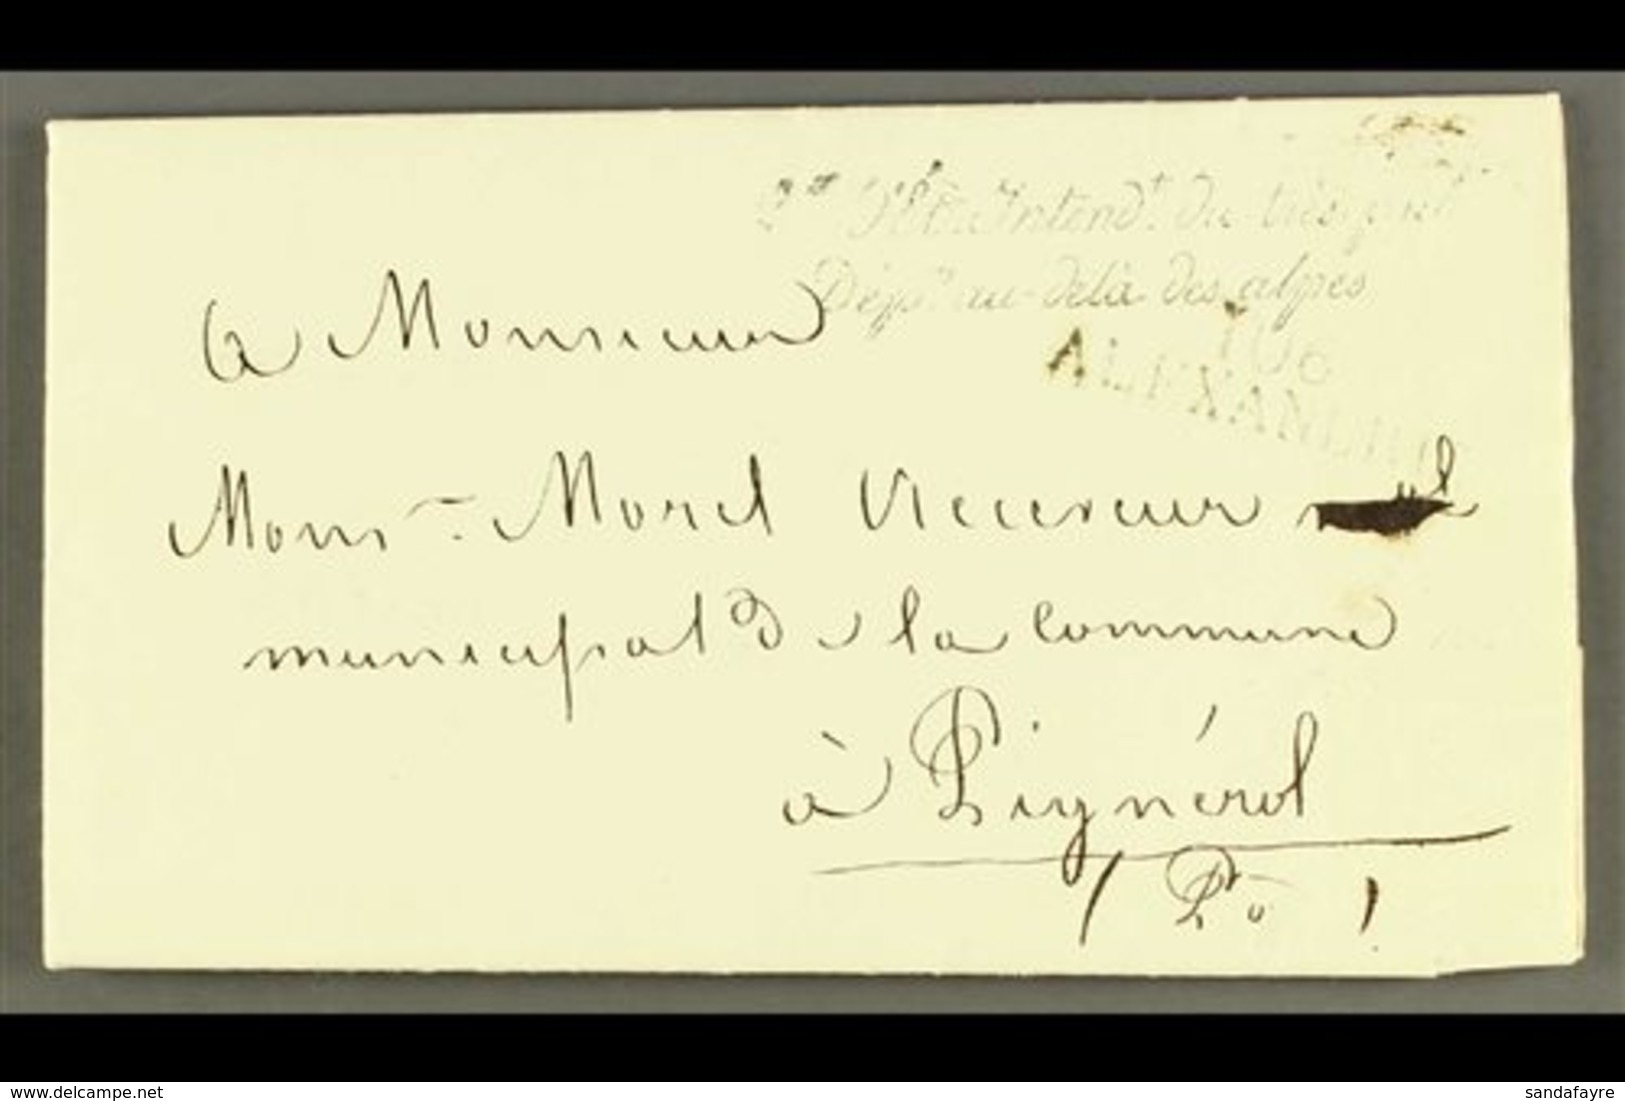 Intend.t du très
Dép.ts au-delà des alpes
106
ALEXANDRIE
a Monsieur
Mons.r Morel Receveur
municipal de la Commune
à Pignérol
www.delcampe.net
sandafayre